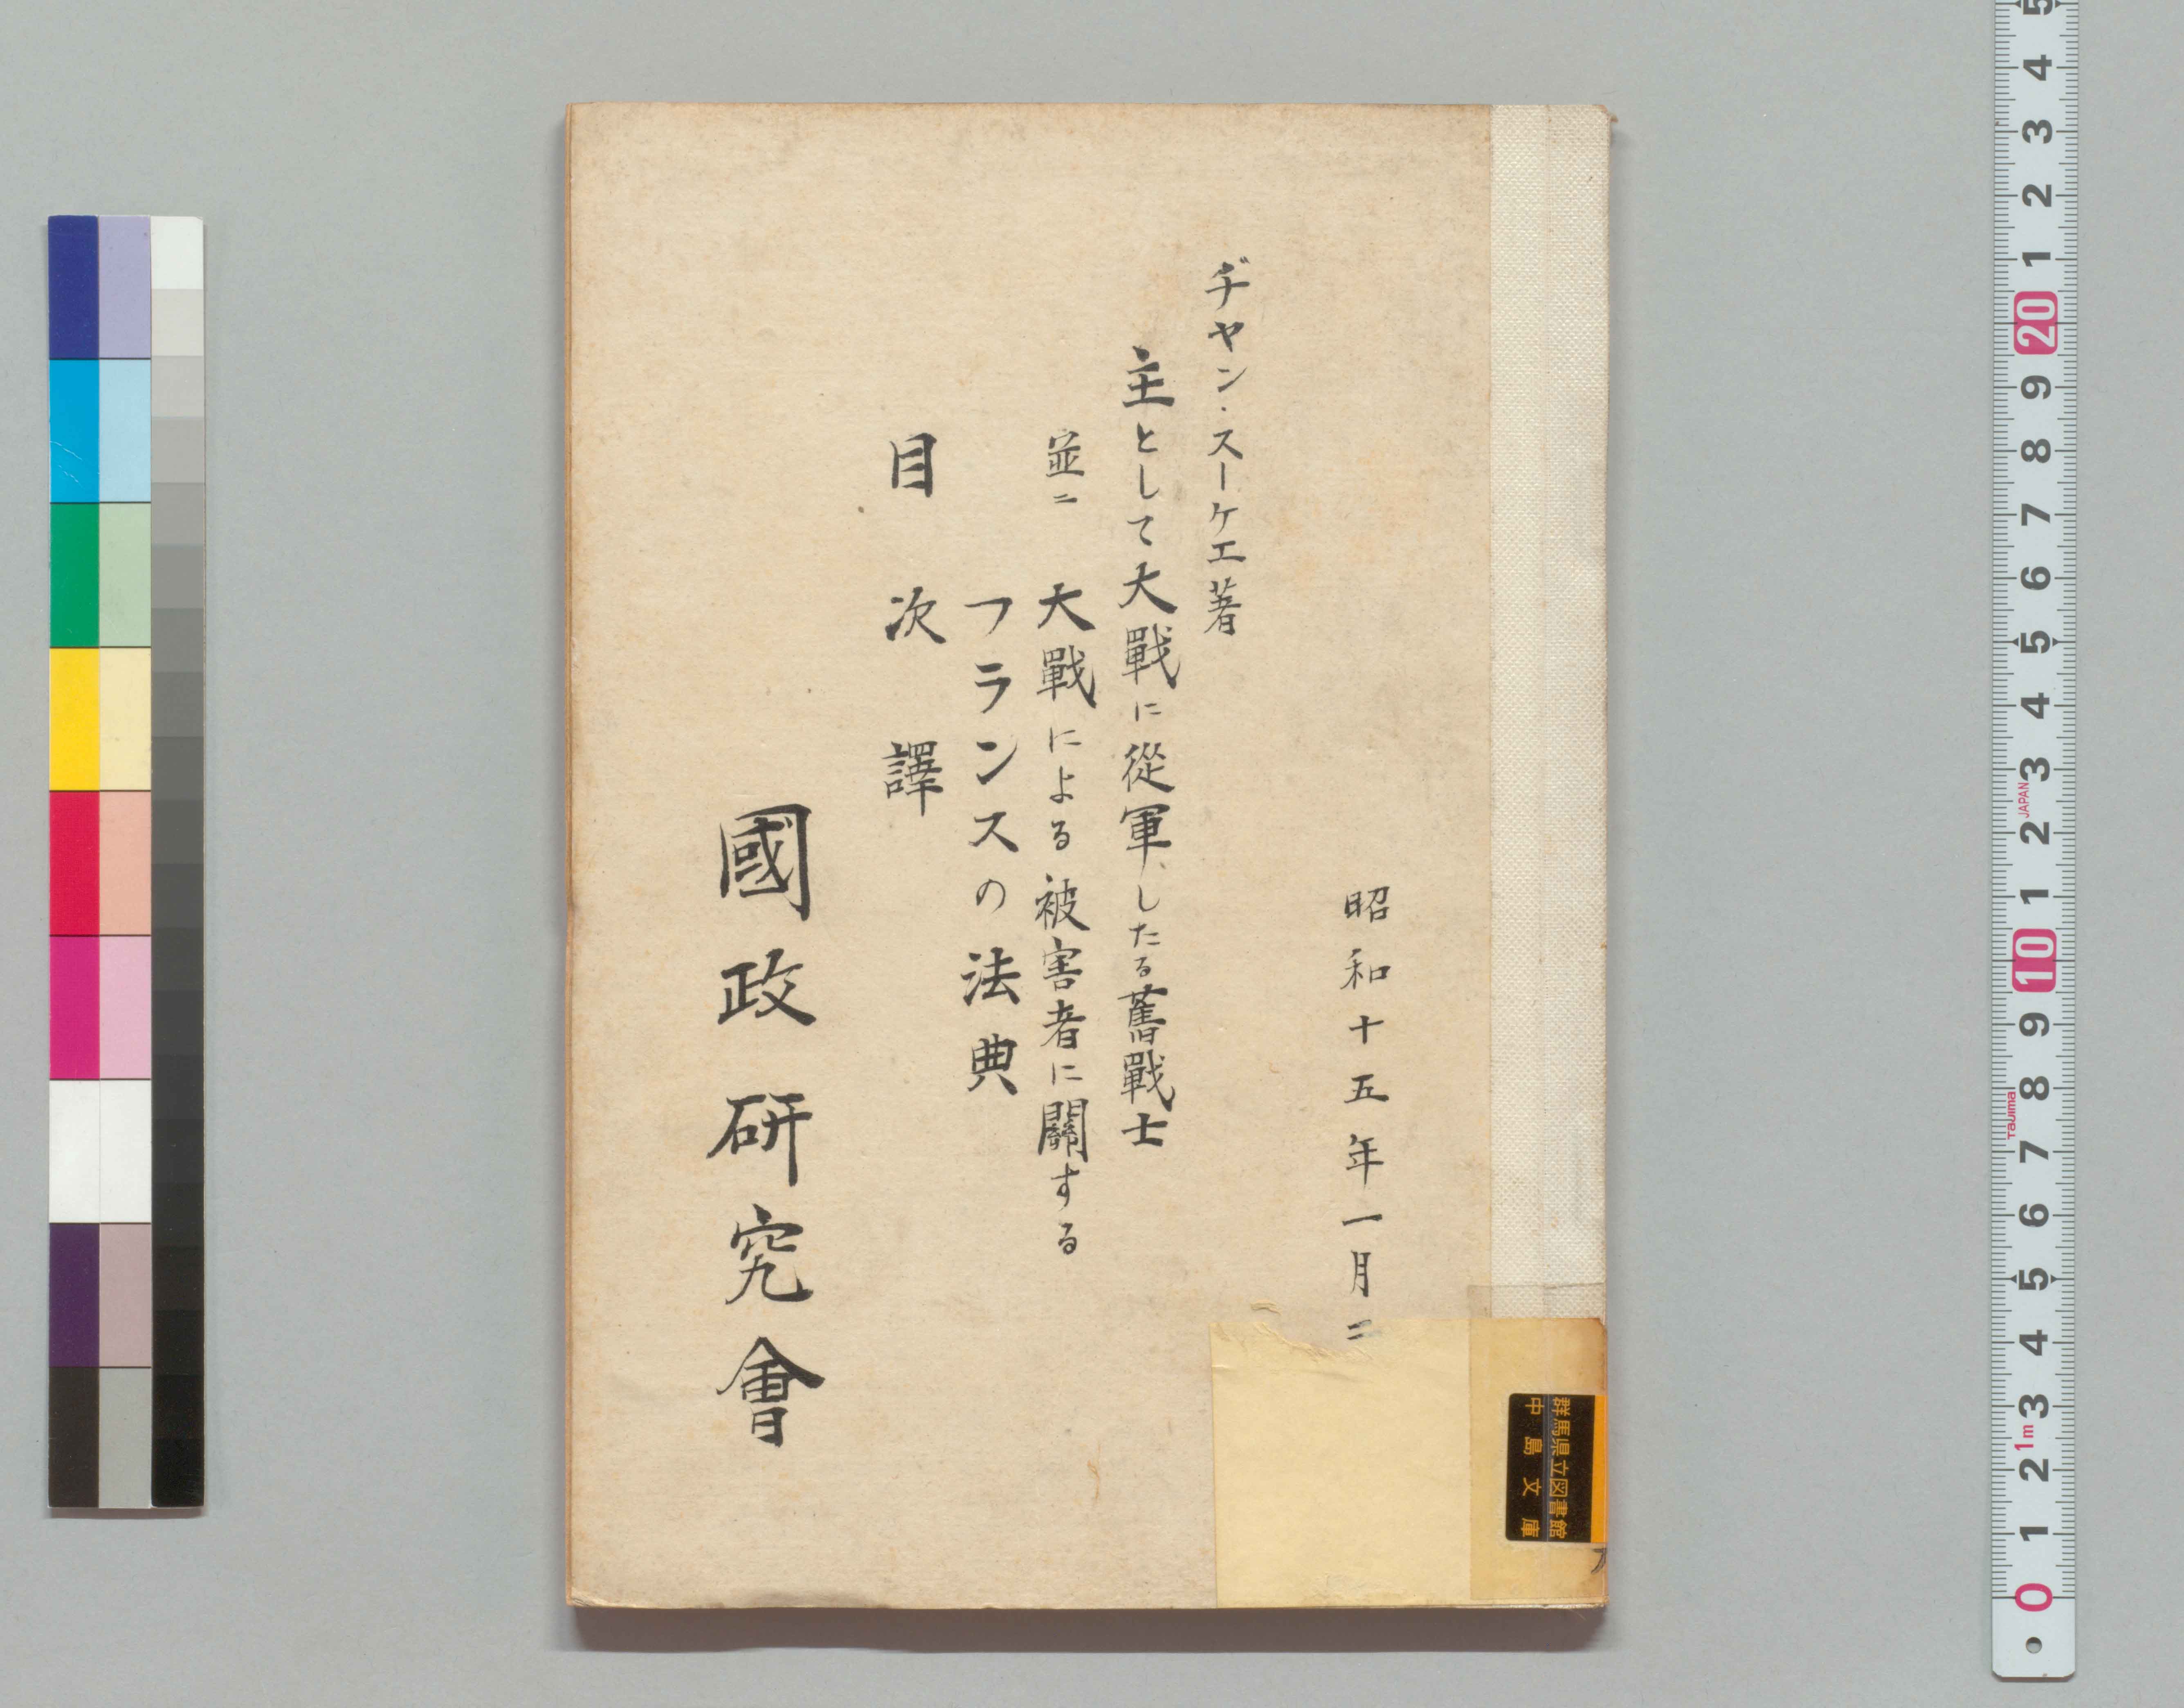 昭和十五年一月二
ヂヤン・スーケエ著
主として大戰に從軍したる舊戰士
並ニ 大戰による被害者に關する
フランスの法典
目次譯
國政研究會
群馬県立図書館
中島文庫
5
4
3
2
1
20
9
8
7
6
5
4
3
JAPAN
2
1
10
9
8
Tajima
7
6
5
4
3
1m
2
1
0